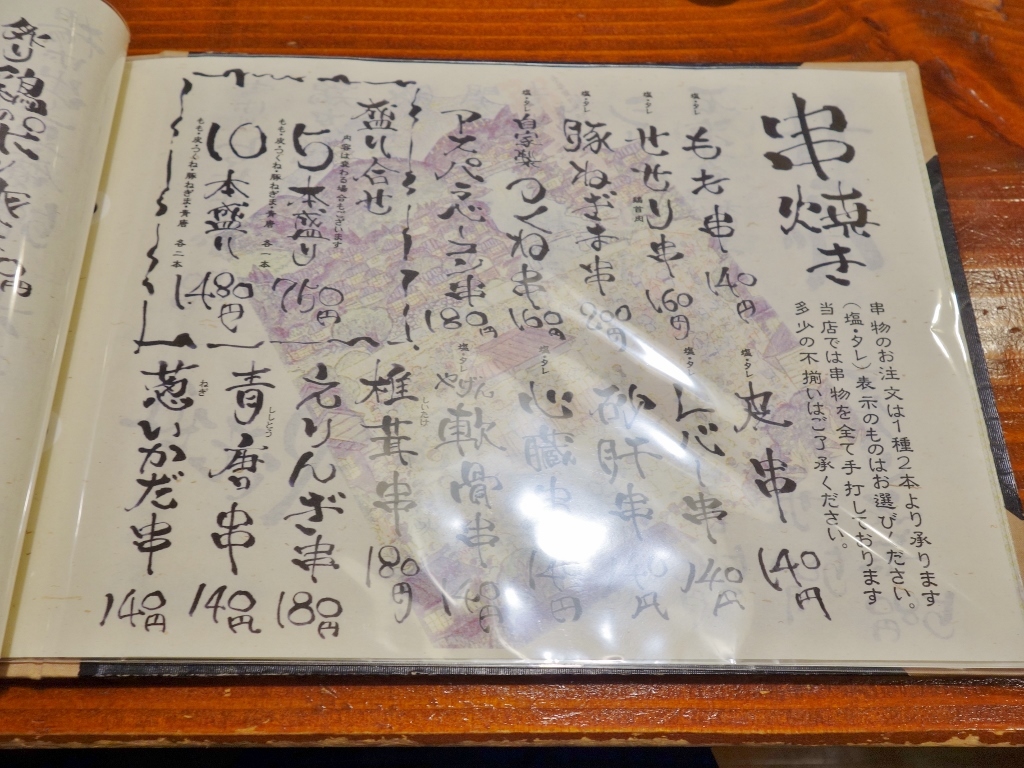 串焼き
串物のお注文は1種2本より承ります
(塩・タレ)表示のものはお選びください。
当店では串物を全て手打しております
多少の不揃いはご了承ください。
塩・タレ
もも串
140円
塩・タレ
せせり串
鶏首肉
160円
塩・タレ
豚ねぎま串
200円
塩・タレ
自家製つくね串
160円
アスパラベーコン串
180円
盛り合せ
内容は変わる場合もございます
5本盛り
もも・皮・つくね・豚ねぎま・青唐 各一本
750円
10本盛り
もも・皮・つくね・豚ねぎま・青唐 各二本
1480円
塩・タレ
皮串
140円
塩・タレ
レバー串
140円
砂肝串
塩・タレ
心臓串
140円
塩・タレ
やげん軟骨串
椎茸串
しいたけ
180円
えりんぎ串
180円
青唐串
ししとう
140円
葱いかだ串
ねぎ
140円